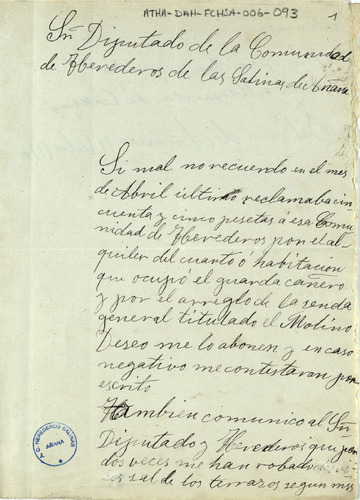 ATHA-DAH-FCHSA-006-093
1
Sr Diputado de la Comunidad
de Herederos de las Salinas de Añana
Si mal no recuerdo en el mes
de Abril último reclamaba cin
cuenta y cinco pesetas á esa Comu
nidad de Herederos por el al
quiler del cuarto ó habitacion
que ocupó el guarda cañero
y por el arreglo de la senda
general titulado el Molino
Deseo me lo abonen y en caso
negativo me contestaran por
escrito
Tambien comunico al Sr
Diputado y Herederos que
dos veces me han robado
sal de los terrazos segun mis
HEREDEROS SALINAS
AÑANA